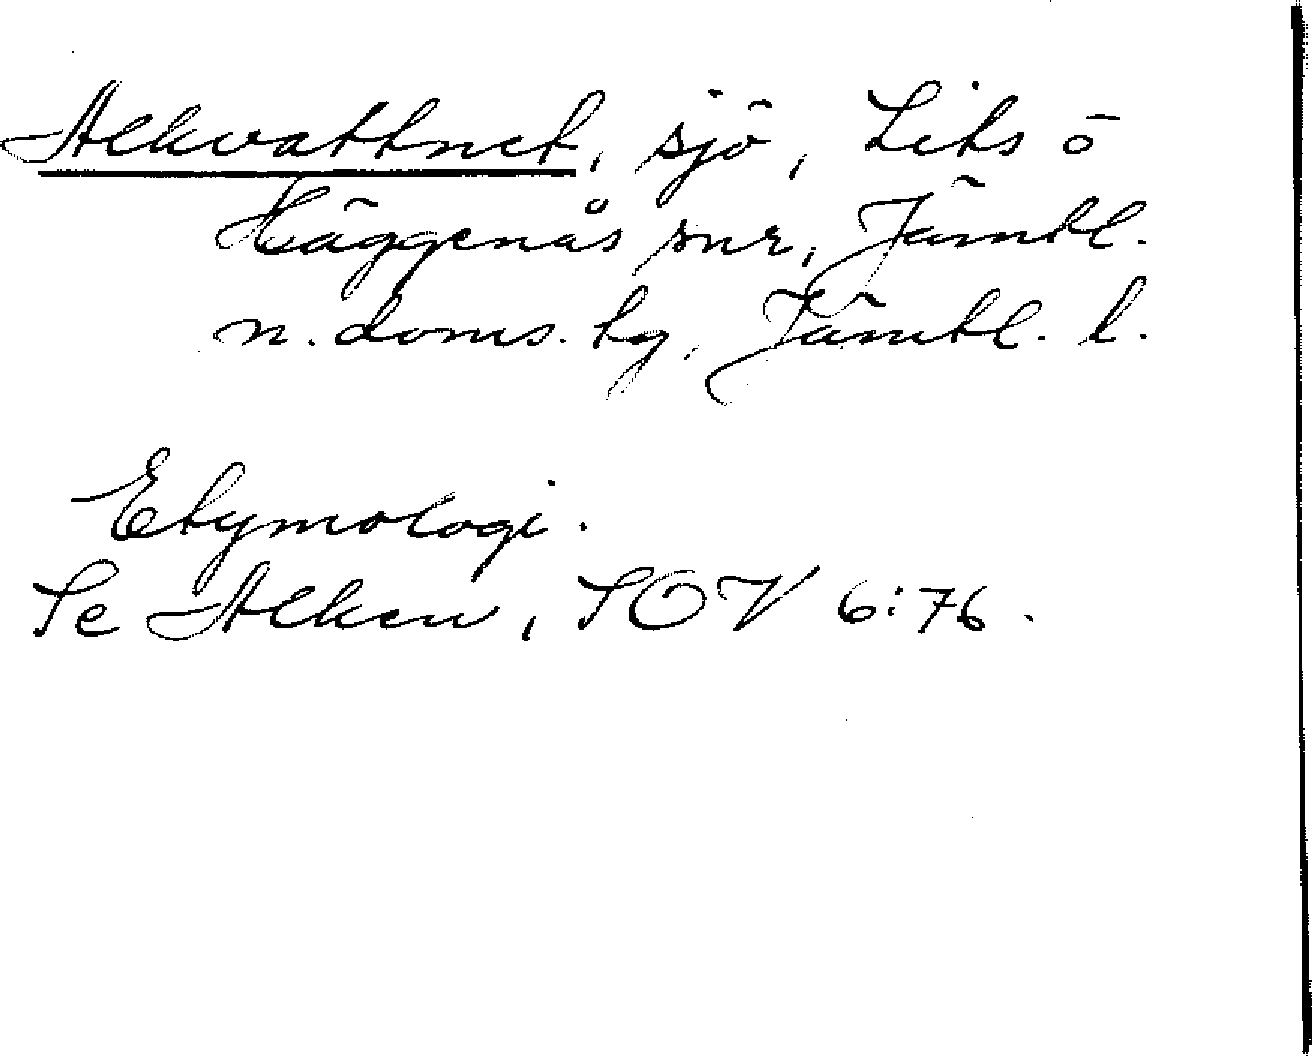 Alkvattnet, sjö, Lits o
Häggenås snr, Jämtl.
n. doms. tg, Jämtl. l.
Etymologi.
Se Alken, SOV 6:76.